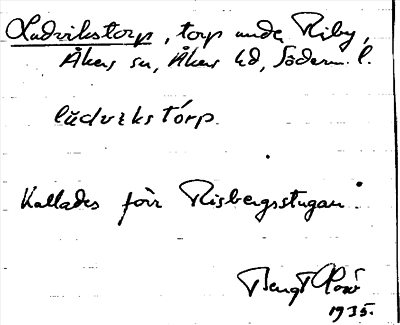 Ludvikstorp, torp under Riby,
Åkers sn, Åkers hd, Söderm. l.
lŭdvikstórp.
Kallades förr Risbergsstugan.
Bengt
1935.